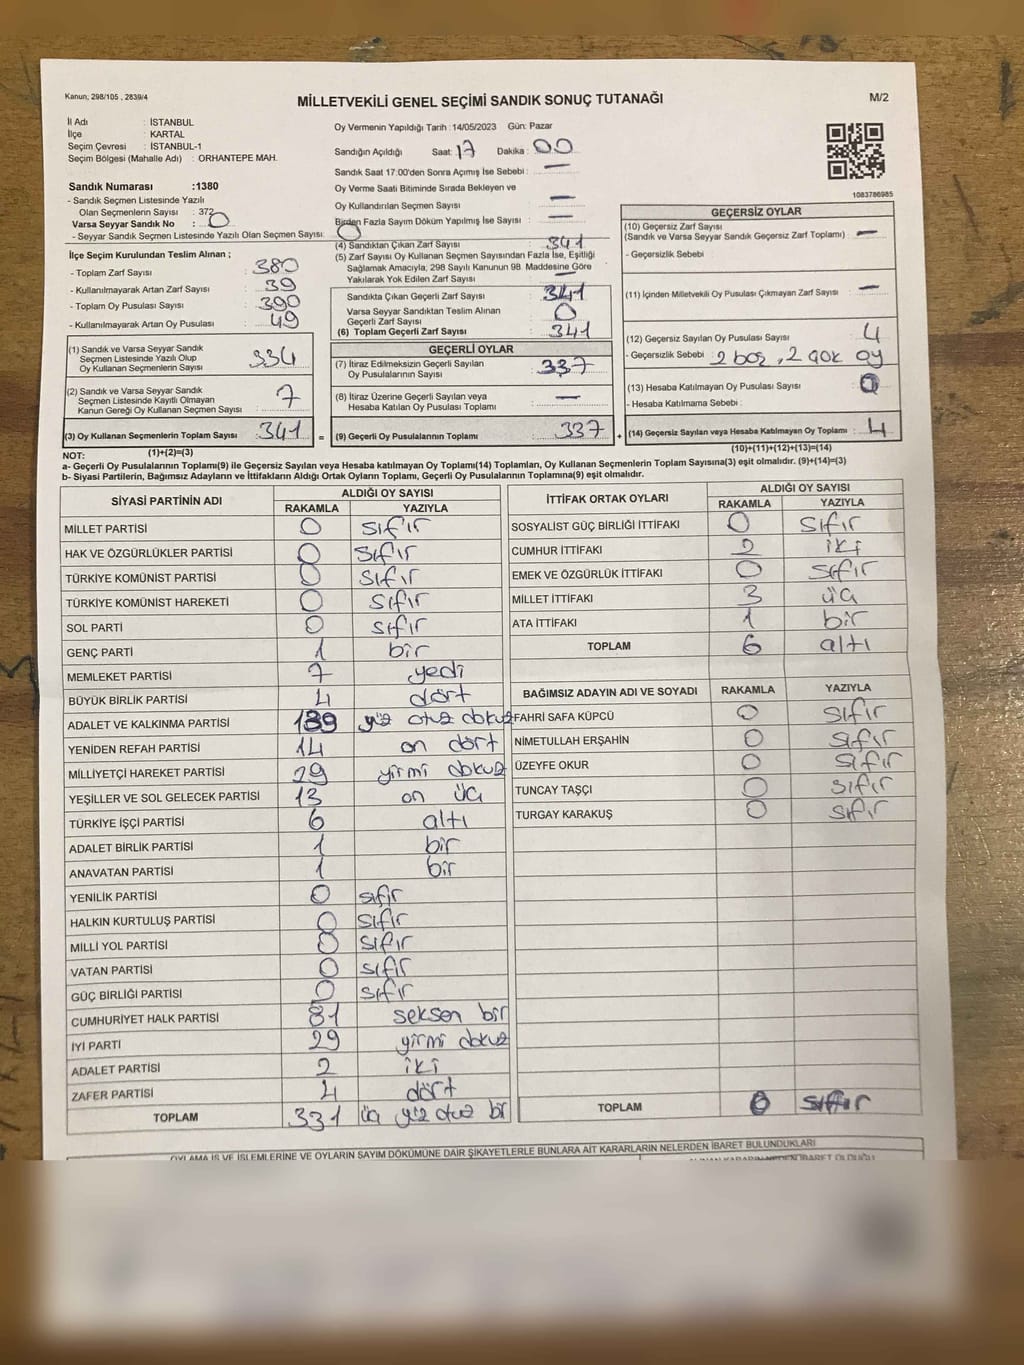 Kanun; 298/105 , 2839/4
MİLLETVEKİLİ GENEL SEÇİMİ SANDIK SONUÇ TUTANAĞI
M/2
İl Adı : İSTANBUL
İlçe : KARTAL
Seçim Çevresi : İSTANBUL-1
Seçim Bölgesi (Mahalle Adı) : ORHANTEPE MAH.
Sandık Numarası :1380
- Sandık Seçmen Listesinde Yazılı
Olan Seçmenlerin Sayısı : 372
Varsa Seyyar Sandık No : 0
- Seyyar Sandık Seçmen Listesinde Yazılı Olan Seçmen Sayısı: 0
Oy Vermenin Yapıldığı Tarih :14/05/2023 Gün: Pazar
Sandığın Açıldığı Saat: 17 Dakika : 00
Sandık Saat 17:00'den Sonra Açmış İse Sebebi : —
Oy Verme Saati Bitiminde Sırada Bekleyen ve
Oy Kullandırılan Seçmen Sayısı —
Birden Fazla Sayım Döküm Yapılmış İse Sayısı : —
1083786985
İlçe Seçim Kurulundan Teslim Alınan ;
- Toplam Zarf Sayısı : 380
- Kullanılmayarak Artan Zarf Sayısı : 39
- Toplam Oy Pusulası Sayısı : 390
- Kullanılmayarak Artan Oy Pusulası : 49
(1) Sandık ve Varsa Seyyar Sandık
Seçmen Listesinde Yazılı Olup
Oy Kullanan Seçmenlerin Sayısı : 334
(2) Sandık ve Varsa Seyyar Sandık
Seçmen Listesinde Kayıtlı Olmayan
Kanun Gereği Oy Kullanan Seçmen Sayısı : 7
(3) Oy Kullanan Seçmenlerin Toplam Sayısı : 341
(1)+(2)=(3)
(4) Sandıktan Çıkan Zarf Sayısı : 341
(5) Zarf Sayısı Oy Kullanan Seçmen Sayısından Fazla İse, Eşitliği
Sağlamak Amacıyla; 298 Sayılı Kanunun 98. Maddesine Göre
Yakılarak Yok Edilen Zarf Sayısı : —
Sandıkta Çıkan Geçerli Zarf Sayısı : 341
Varsa Seyyar Sandıktan Teslim Alınan
Geçerli Zarf Sayısı : 0
(6) Toplam Geçerli Zarf Sayısı : 341
GEÇERLİ OYLAR
(7) İtiraz Edilmeksizin Geçerli Sayılan
Oy Pusulalarının Sayısı : 337
(8) İtiraz Üzerine Geçerli Sayılan veya
Hesaba Katılan Oy Pusulası Toplamı : —
= (9) Geçerli Oy Pusulalarının Toplamı : 337 +
GEÇERSİZ OYLAR
(10) Geçersiz Zarf Sayısı
(Sandık ve Varsa Seyyar Sandık Geçersiz Zarf Toplamı) : —
- Geçersizlik Sebebi
(11) İçinden Milletvekili Oy Pusulası Çıkmayan Zarf Sayısı : —
(12) Geçersiz Sayılan Oy Pusulası Sayısı : 4
- Geçersizlik Sebebi : 2 boş, 2 çok oy
(13) Hesaba Katılmayan Oy Pusulası Sayısı : 0
- Hesaba Katılmama Sebebi :
(14) Geçersiz Sayılan veya Hesaba Katılmayan Oy Toplamı : 4
(10)+(11)+(12)+(13)=(14)
NOT:
a- Geçerli Oy Pusulalarının Toplamı(9) ile Geçersiz Sayılan veya Hesaba katılmayan Oy Toplamı(14) Toplamları, Oy Kullanan Seçmenlerin Toplam Sayısına(3) eşit olmalıdır. (9)+(14)=(3)
b- Siyasi Partilerin, Bağımsız Adayların ve İttifakların Aldığı Ortak Oyların Toplamı, Geçerli Oy Pusulalarının Toplamına(9) eşit olmalıdır.
SİYASİ PARTİNİN ADI ALDIĞI OY SAYISI
RAKAMLA YAZIYLA
MİLLET PARTİSİ 0 sıfır
HAK VE ÖZGÜRLÜKLER PARTİSİ 0 sıfır
TÜRKİYE KOMÜNİST PARTİSİ 0 sıfır
TÜRKİYE KOMÜNİST HAREKETİ 0 sıfır
SOL PARTİ 0 sıfır
GENÇ PARTİ 1 bir
MEMLEKET PARTİSİ 7 yedi
BÜYÜK BİRLİK PARTİSİ 4 dört
ADALET VE KALKINMA PARTİSİ 139 yüz otuz dokuz
YENİDEN REFAH PARTİSİ 14 on dört
MİLLİYETÇİ HAREKET PARTİSİ 29 yirmi dokuz
YEŞİLLER VE SOL GELECEK PARTİSİ 13 on üç
TÜRKİYE İŞÇİ PARTİSİ 6 altı
ADALET BİRLİK PARTİSİ 1 bir
ANAVATAN PARTİSİ 1 bir
YENİLİK PARTİSİ 0 sıfır
HALKIN KURTULUŞ PARTİSİ 0 sıfır
MİLLİ YOL PARTİSİ 0 sıfır
VATAN PARTİSİ 0 sıfır
GÜÇ BİRLİĞİ PARTİSİ 0 sıfır
CUMHURİYET HALK PARTİSİ 81 seksen bir
İYİ PARTİ 29 yirmi dokuz
ADALET PARTİSİ 2 iki
ZAFER PARTİSİ 4 dört
TOPLAM 331 üç yüz otuz bir
İTTİFAK ORTAK OYLARI ALDIĞI OY SAYISI
RAKAMLA YAZIYLA
SOSYALİST GÜÇ BİRLİĞİ İTTİFAKI 0 sıfır
CUMHUR İTTİFAKI 2 iki
EMEK VE ÖZGÜRLÜK İTTİFAKI 0 sıfır
MİLLET İTTİFAKI 3 üç
ATA İTTİFAKI 1 bir
TOPLAM 6 altı
BAĞIMSIZ ADAYIN ADI VE SOYADI RAKAMLA YAZIYLA
FAHRİ SAFA KÜPCÜ 0 sıfır
NİMETULLAH ERŞAHİN 0 sıfır
ÜZEYFE OKUR 0 sıfır
TUNCAY TAŞÇI 0 sıfır
TURGAY KARAKUŞ 0 sıfır
TOPLAM 0 sıfır
OYLAMA İŞ VE İŞLEMLERİNE VE OYLARIN SAYIM DÖKÜMÜNE DAİR ŞİKAYETLERLE BUNLARA AİT KARARLARIN NELERDEN İBARET BULUNDUKLARI